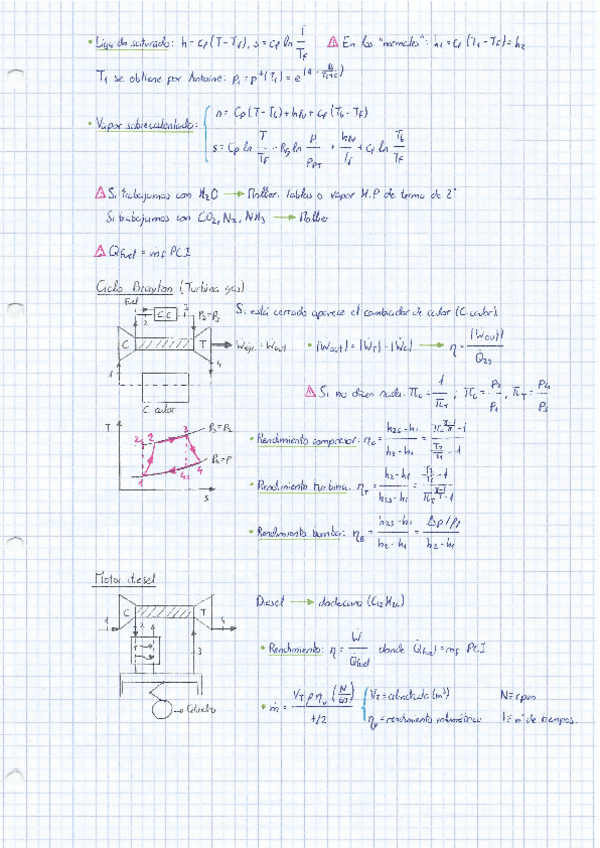 • Líquido saturado: h = cp (T - Tf), s = cp ln T/Tf ⚠ En los "normales": h1 = cp (T1 - Tf) = h2
T1 se obtiene por Antoine: P1 = p*(T1) = e^(A -
• Vapor sobrecalentado: h = cp (T - Tb) + hfv + cp (Tb - Tf)
s = cp ln T/Tf - Rg ln P/
+ cp ln Tb/Tf
⚠ Si trabajamos con H2O → Mollier, tablas o vapor H.P de termo de 2º
Si trabajamos con CO2, N2, NH3 → Mollier
⚠ Qfuel = mf PCI
Ciclo Brayton (Turbina gas)
Fuel
C.C
2
3
P3=P2
C
T
Weje = Wout
1
4
C. calor
Si está cerrado aparece el cambiador de calor (C.calor)
• |Wout| = |WT| - |WC| → η = |Wout| / Q23
⚠ Si no dicen nada: πC = 1/πT ; πC = P2/P1, πT = P4/P3
T
2s
2
3
P3=P2
1
4s
4
P4=P
s
• Rendimiento compresor: ηC = h2s - h1 / h2 - h1
• Rendimiento turbina: ηT =
• Rendimiento bomba: ηB = h2s - h1 / h2 - h1 = Δp/ρ / h2 - h1
Motor diesel
1
C
T
4
2
3
→ Cilindro
Diesel → dodecano (C12H26)
• Rendimiento: η = W / Qfuel donde Qfuel = mf PCI
• m = VT ρ ηv (N/60) / t/2
VT = cilindrada (m³)
N = rpm
ηv = rendimiento volumétrico
t = nº de tiempos.